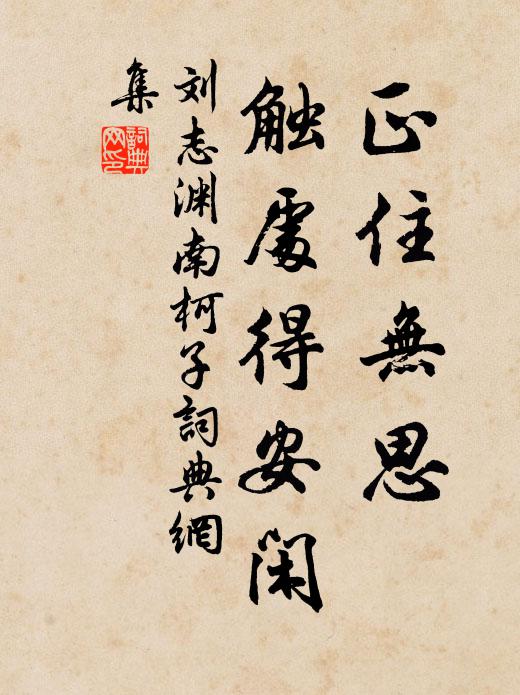 正住無思
触處得安闲
刘志渊南柯子詞典網
集
詞典
网印